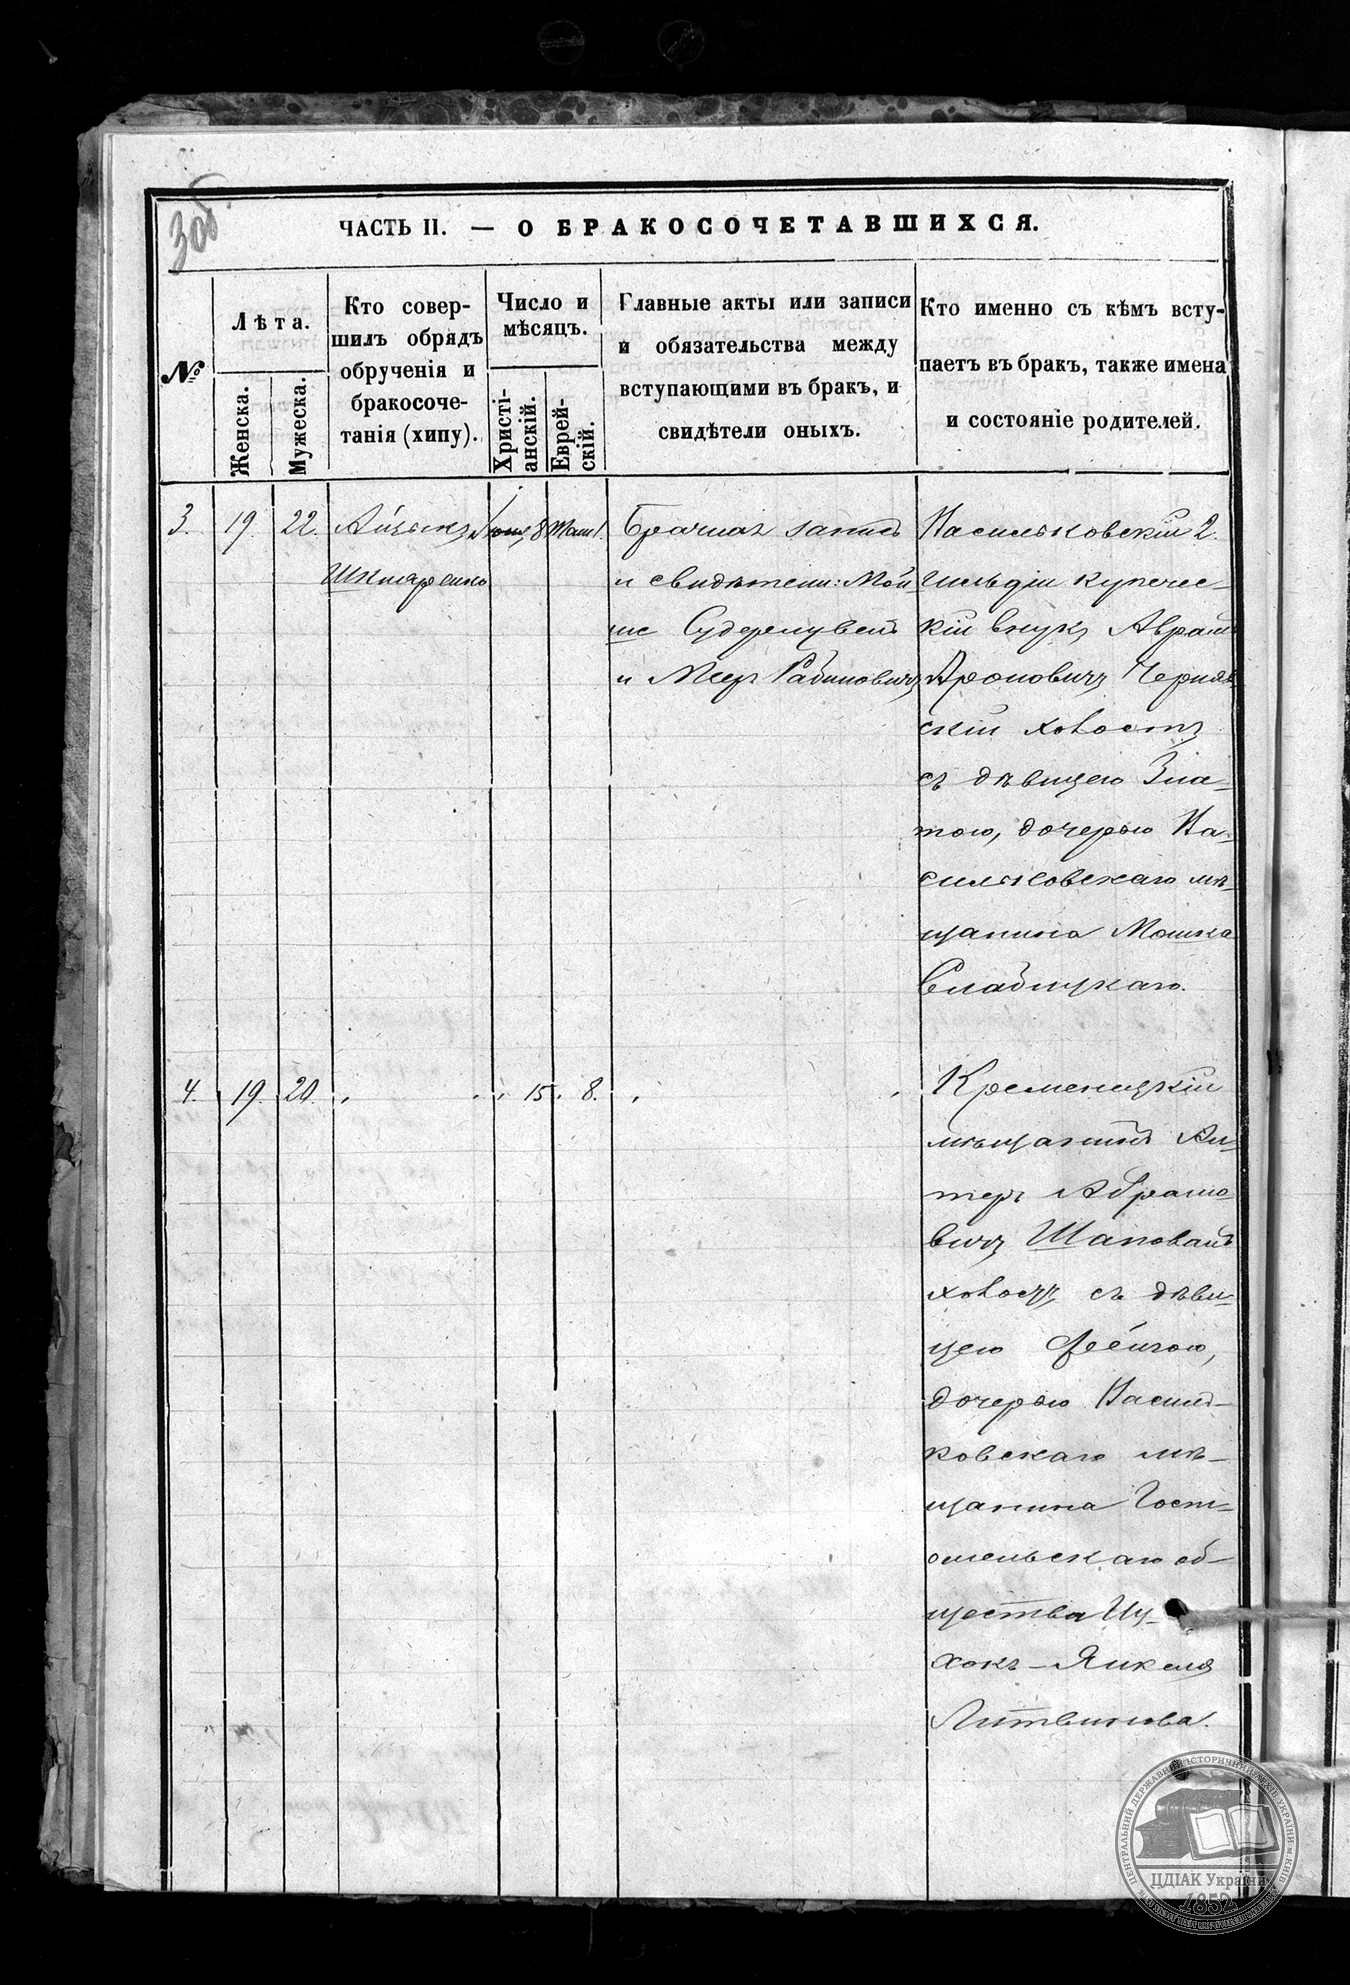 30б.
ЧАСТЬ II. — О БРАКОСОЧЕТАВШИХСЯ.
№
Лѣта.
Женска.
Мужеска.
Кто совер-
шилъ обрядъ
обрученія и
бракосоче-
танія (хипу).
Число и
мѣсяцъ.
Христі-
анскій.
Еврей-
скій.
Главные акты или записи
и обязательства между
вступающими въ бракъ, и
свидѣтели оныхъ.
Кто именно съ кѣмъ всту-
паетъ въ бракъ, также имена
и состояніе родителей.
3. 19. 22.
Айзикъ
Шкляренко
Іюня 8
1.
Брачная запись
и свидѣтели: Мой
ше
и Меер Рабиновичъ
Васильковскій 2.
гильдіи купечес-
кій внукъ Аврамъ
Ароновичъ Черняв
скій холостъ
съ дѣвицею Зла-
тою, дочерью Ва-
сильковскаго мѣ-
щанина Мошка
Слабицкаго.
4. 19. 20. 15. 8.
Кременецкій
мѣщанинъ Ал-
теръ Абрамо-
вичъ Шаповалъ
холостъ, съ дѣви-
цею Фейгою,
дочерью Василь-
ковскаго мѣ-
щанина Гост-
омельскаго об-
щества Иц-
хокъ-Янкеля
Литвинова.
ЦЕНТРАЛЬНИЙ ДЕРЖАВНИЙ ІСТОРИЧНИЙ АРХІВ УКРАЇНИ м. КИЇВ
ЦДІАК України
1852